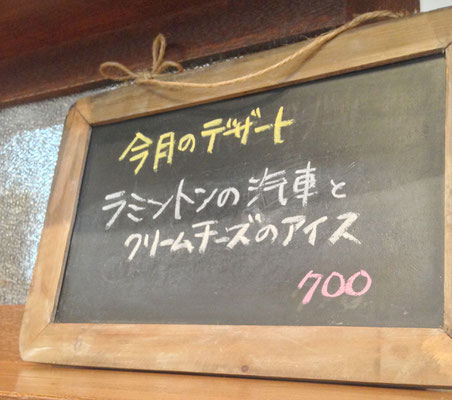 今月のデザート
ラミントンの汽車と
クリームチーズのアイス
700